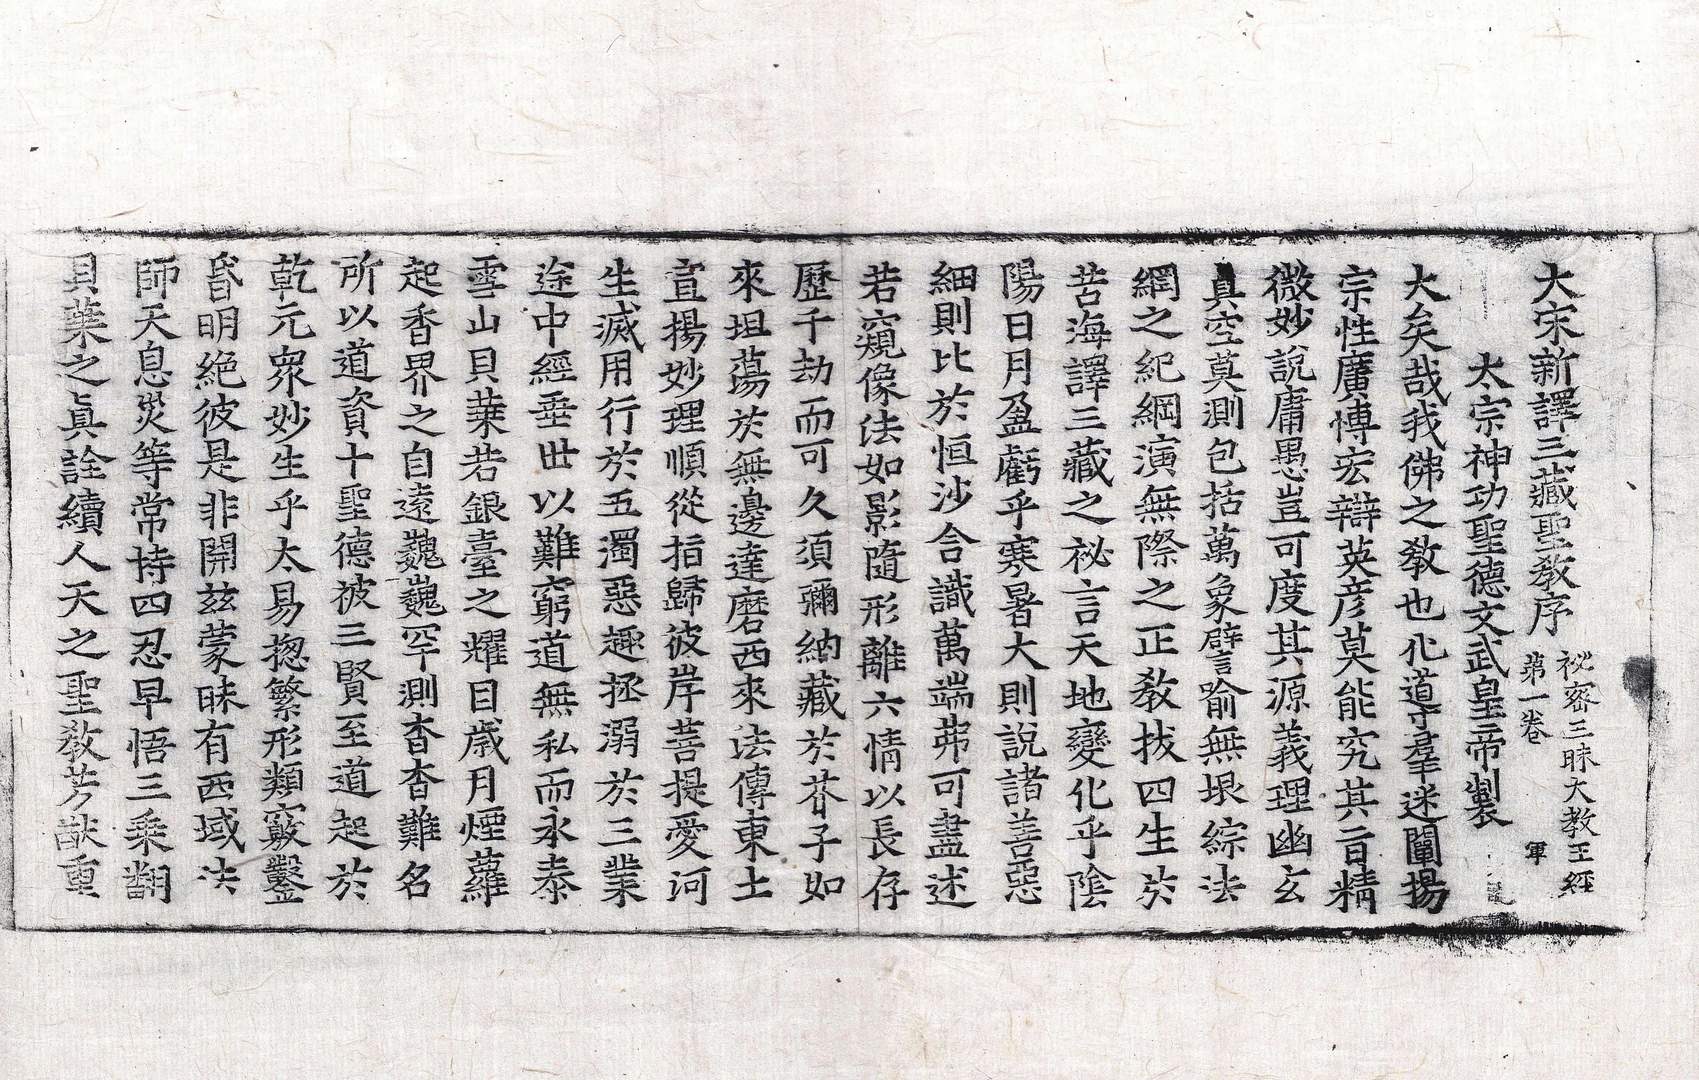 大宋新譯三藏聖教序
祕密三昧大教王經
第一卷
軍
太宗神功聖德文武皇帝製
大矣哉我佛之教也化導羣迷闡揚
宗性廣博宏辯英彦莫能究其旨精
微妙說庸愚豈可度其源義理幽玄
真空莫測包括萬象譬喻無垠綜法
網之紀綱演無際之正教拔四生於
苦海譯三藏之祕言天地變化乎陰
陽日月盈虧乎寒暑大則說諸善惡
細則比於恒沙含識萬端弗可盡述
若窺像法如影隨形離六情以長存
歷千劫而可久須彌納藏於芥子如
來坦蕩於無邊達磨西來法傳東土
宣揚妙理順從指歸彼岸菩提愛河
生滅用行於五濁惡趣拯溺於三業
途中經垂世以難窮道無私而永泰
雪山貝葉若銀臺之耀目歲月煙蘿
起香界之自遠巍巍罕測杳杳難名
所以道資十聖德被三賢至道起於
乾元衆妙生乎太易揔繁形類竅鑿
昏明絕彼是非開茲蒙昧有西域法
師天息災等常持四忍早悟三乘翻
貝葉之真詮續人天之聖教芳猷重